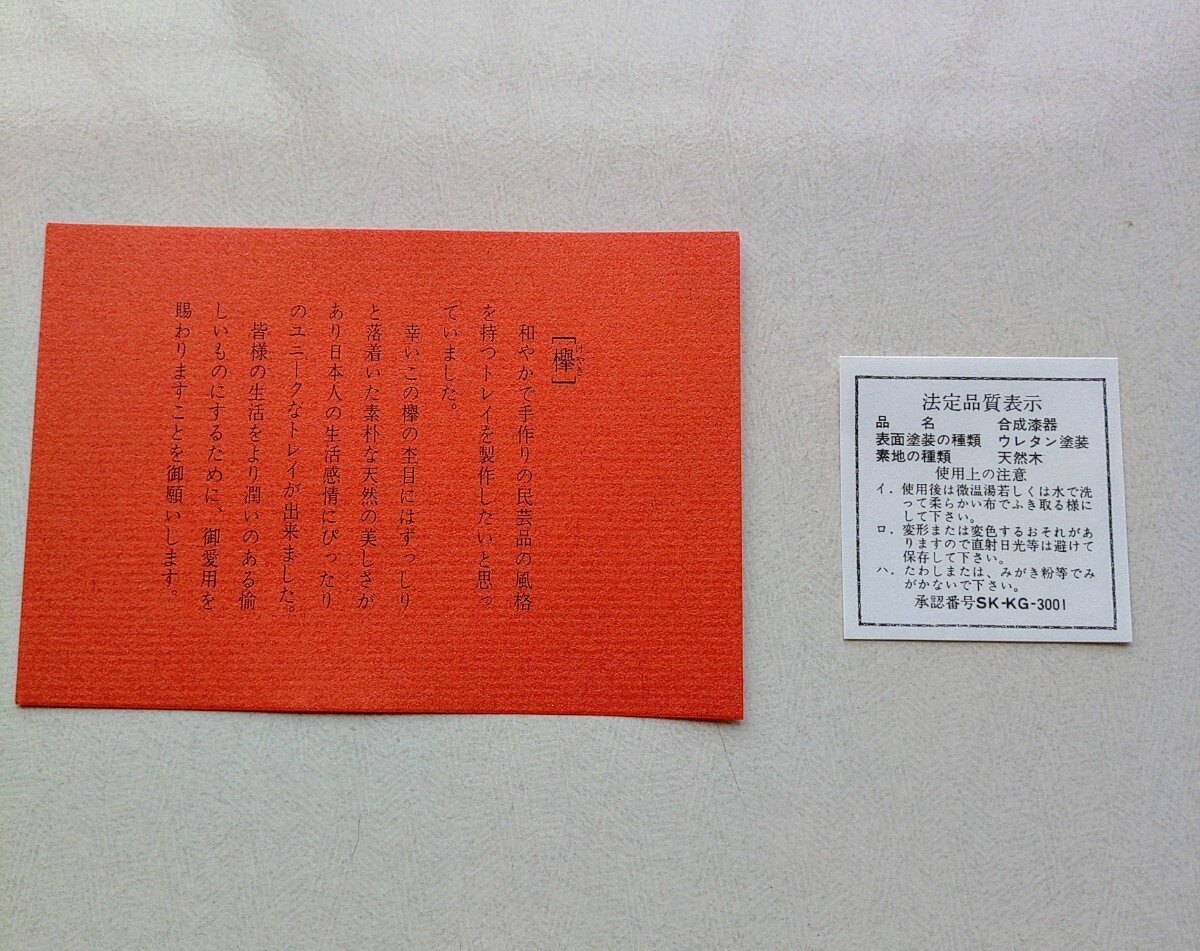 ［欅］
けやき
和やかで手作りの民芸品の風格
を持つトレイを製作したいと思っ
ていました。
幸いこの欅の杢目にはずっしり
と落着いた素朴な天然の美しさが
あり日本人の生活感情にぴったり
のユニークなトレイが出来ました。
皆様の生活をより潤いのある愉
しいものにするために、御愛用を
賜わりますことを御願いします。
法定品質表示
品　　名　合成漆器
表面塗装の種類　ウレタン塗装
素地の種類　天然木
使用上の注意
イ．使用後は微温湯若しくは水で洗
って柔らかい布でふき取る様に
して下さい。
ロ．変形または変色するおそれがあ
りますので直射日光等は避けて
保存して下さい。
ハ．たわしまたは、みがき粉等でみ
がかないで下さい。
承認番号SK-KG-3001